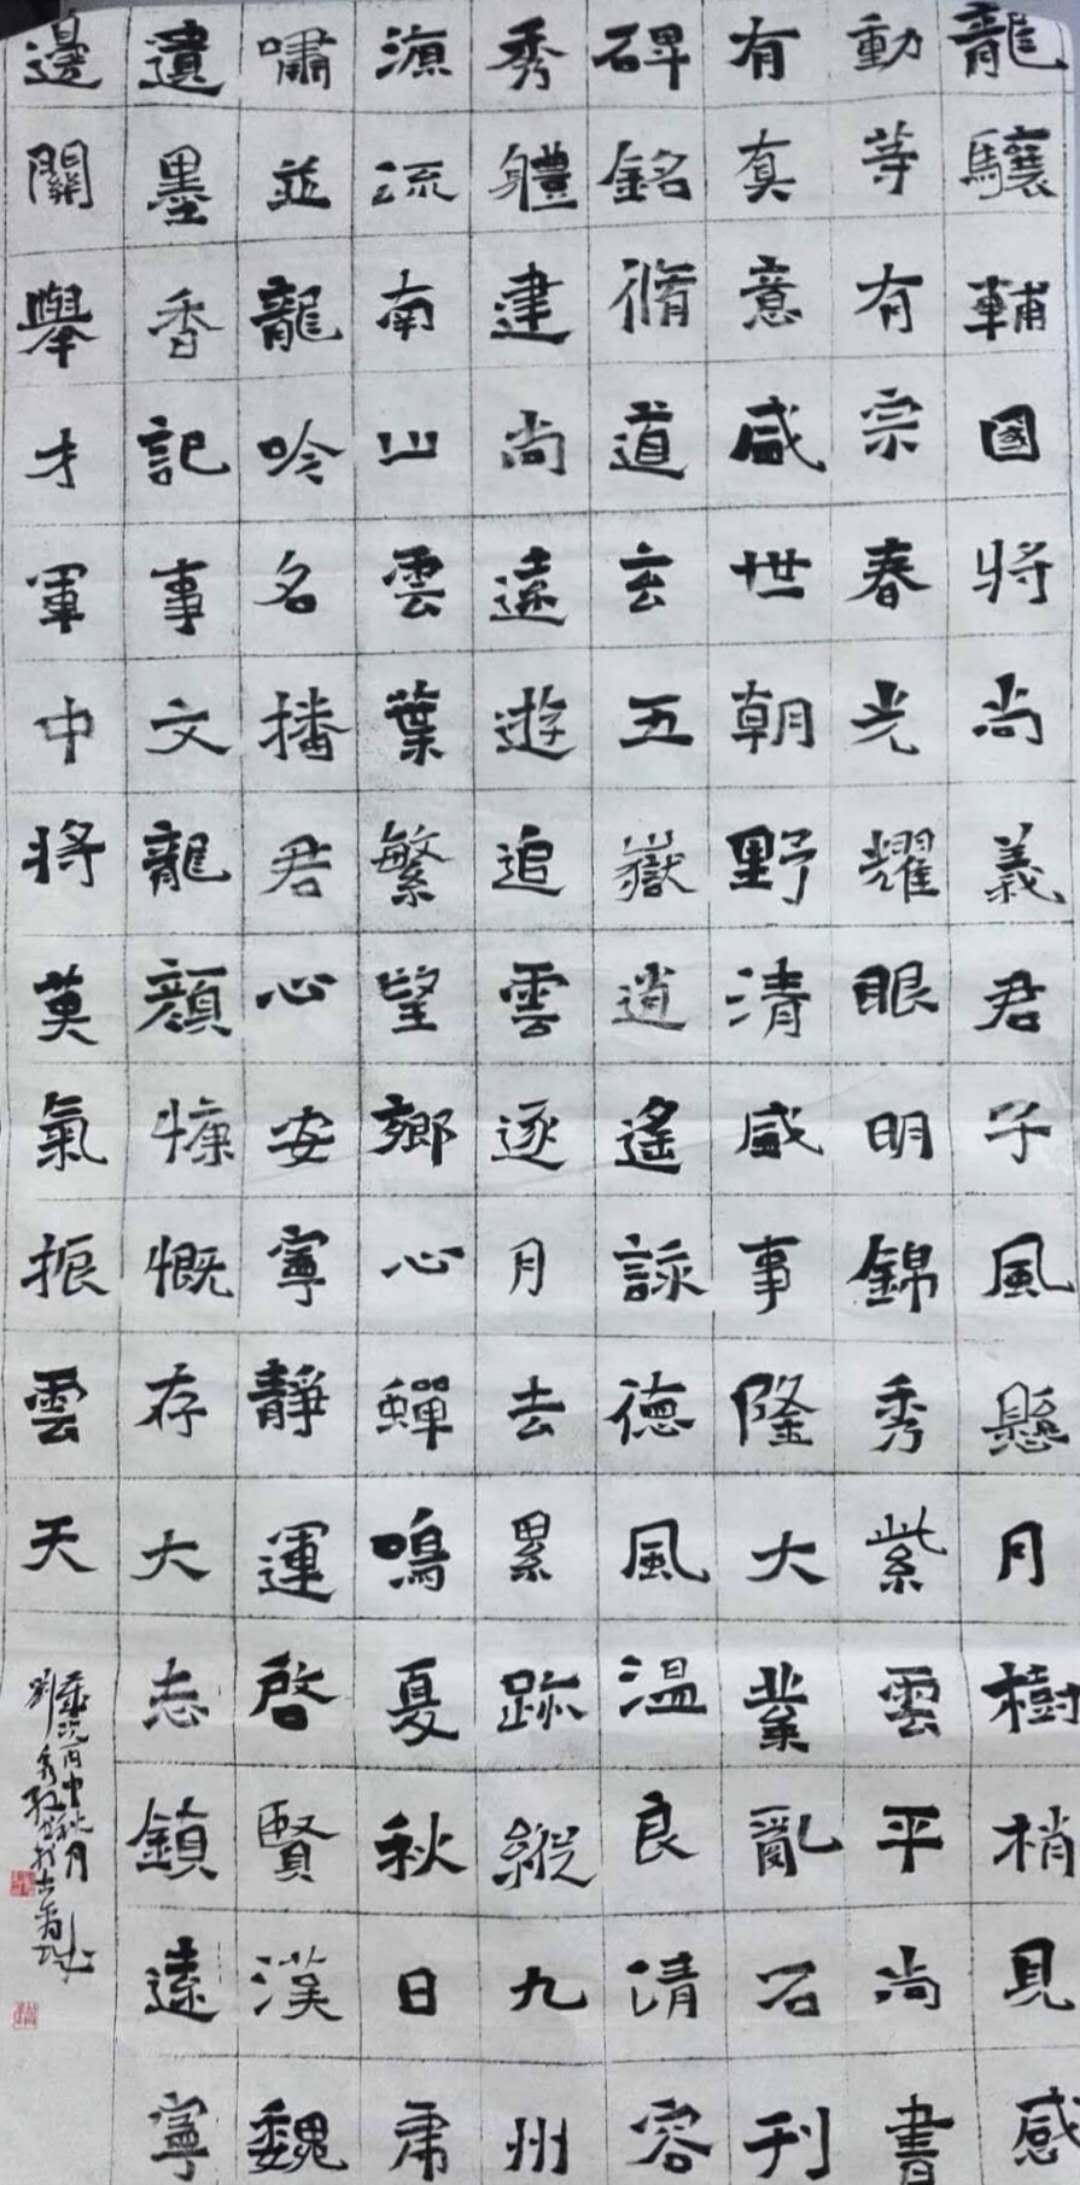 龍驤輔國將尚義君子風懸月樹梢見感
動等有宗春光耀眼明錦秀紫雲平尚書
有真意咸世朝野清盛事隆大業亂石刊
碑銘脩道玄五嶽逍遙詠德風温良清容
秀體建尚遠遊追雲逐月去累跡縱九州
源流南山雲葉繁望鄉心蟬鳴夏秋日肅
嘯並龍吟名播君心安寧靜運啓賢漢魏
遺墨香記事文龍顏慷慨存大志鎮遠寧
邊關舉才軍中將莫氣振雲天